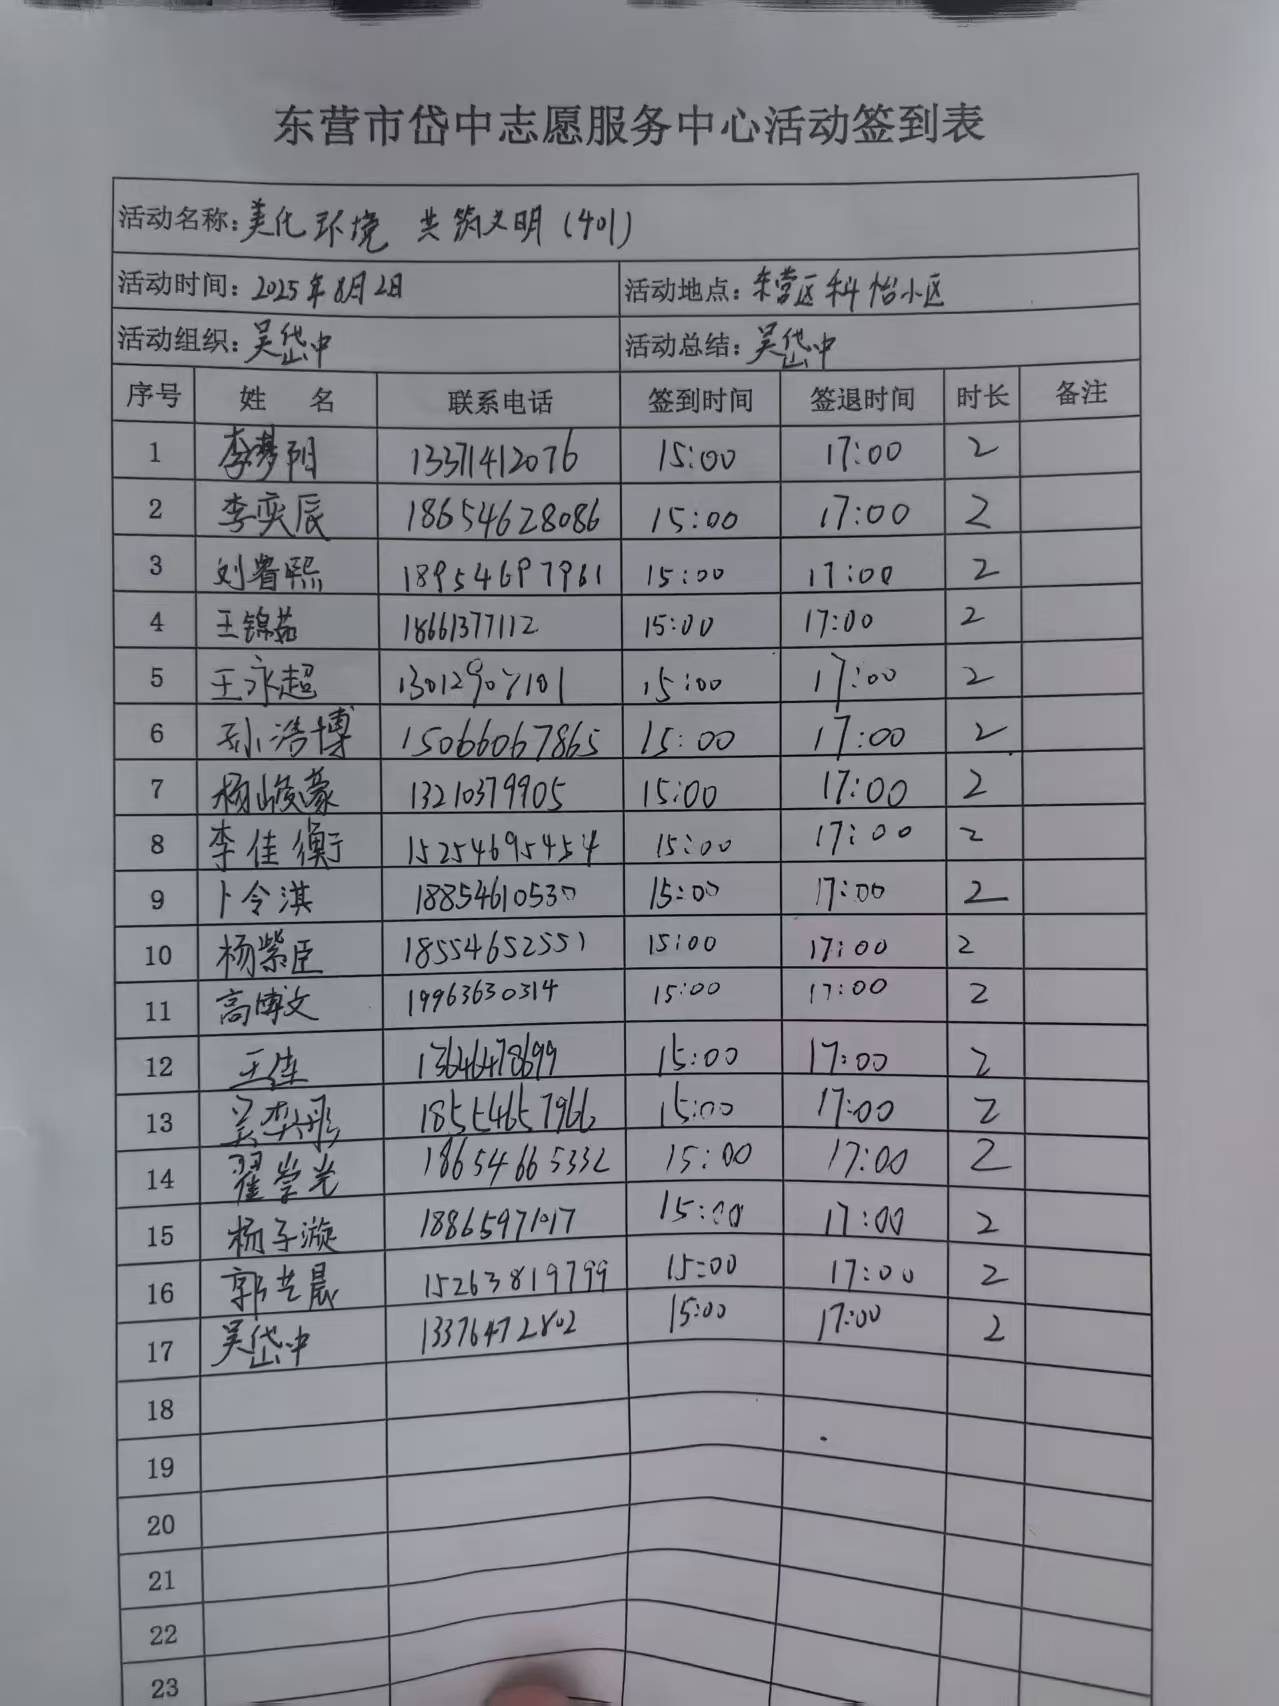 东营市岱中志愿服务中心活动签到表
活动名称：美化环境 共筑文明（401）
活动时间：2025年8月2日 活动地点：东营区科怡小区
活动组织：吴岱中 活动总结：吴岱中
序号 姓 名 联系电话 签到时间 签退时间 时长 备注
1 李梦阳 13371412076 15:00 17:00 2
2 李奕辰 18654628086 15:00 17:00 2
3 刘睿熙 18954697961 15:00 17:00 2
4 王锦茹 18661377112 15:00 17:00 2
5 王永超 13012907101 15:00 17:00 2
6 孙浩博 15066067865 15:00 17:00 2
7 杨峻濠 13210379905 15:00 17:00 2
8 李佳衡 15254695454 15:00 17:00 2
9 卜令淇 18854610530 15:00 17:00 2
10 杨紫臣 18554652551 15:00 17:00 2
11 高博文 19963630314 15:00 17:00 2
12 王佳 13646478699 15:00 17:00 2
13 吴奕彤 18554657966 15:00 17:00 2
14 翟崇光 18654665332 15:00 17:00 2
15 杨子漩 18865971017 15:00 17:00 2
16 郭艺晨 15263819799 15:00 17:00 2
17 吴岱中 13376472802 15:00 17:00 2
18
19
20
21
22
23